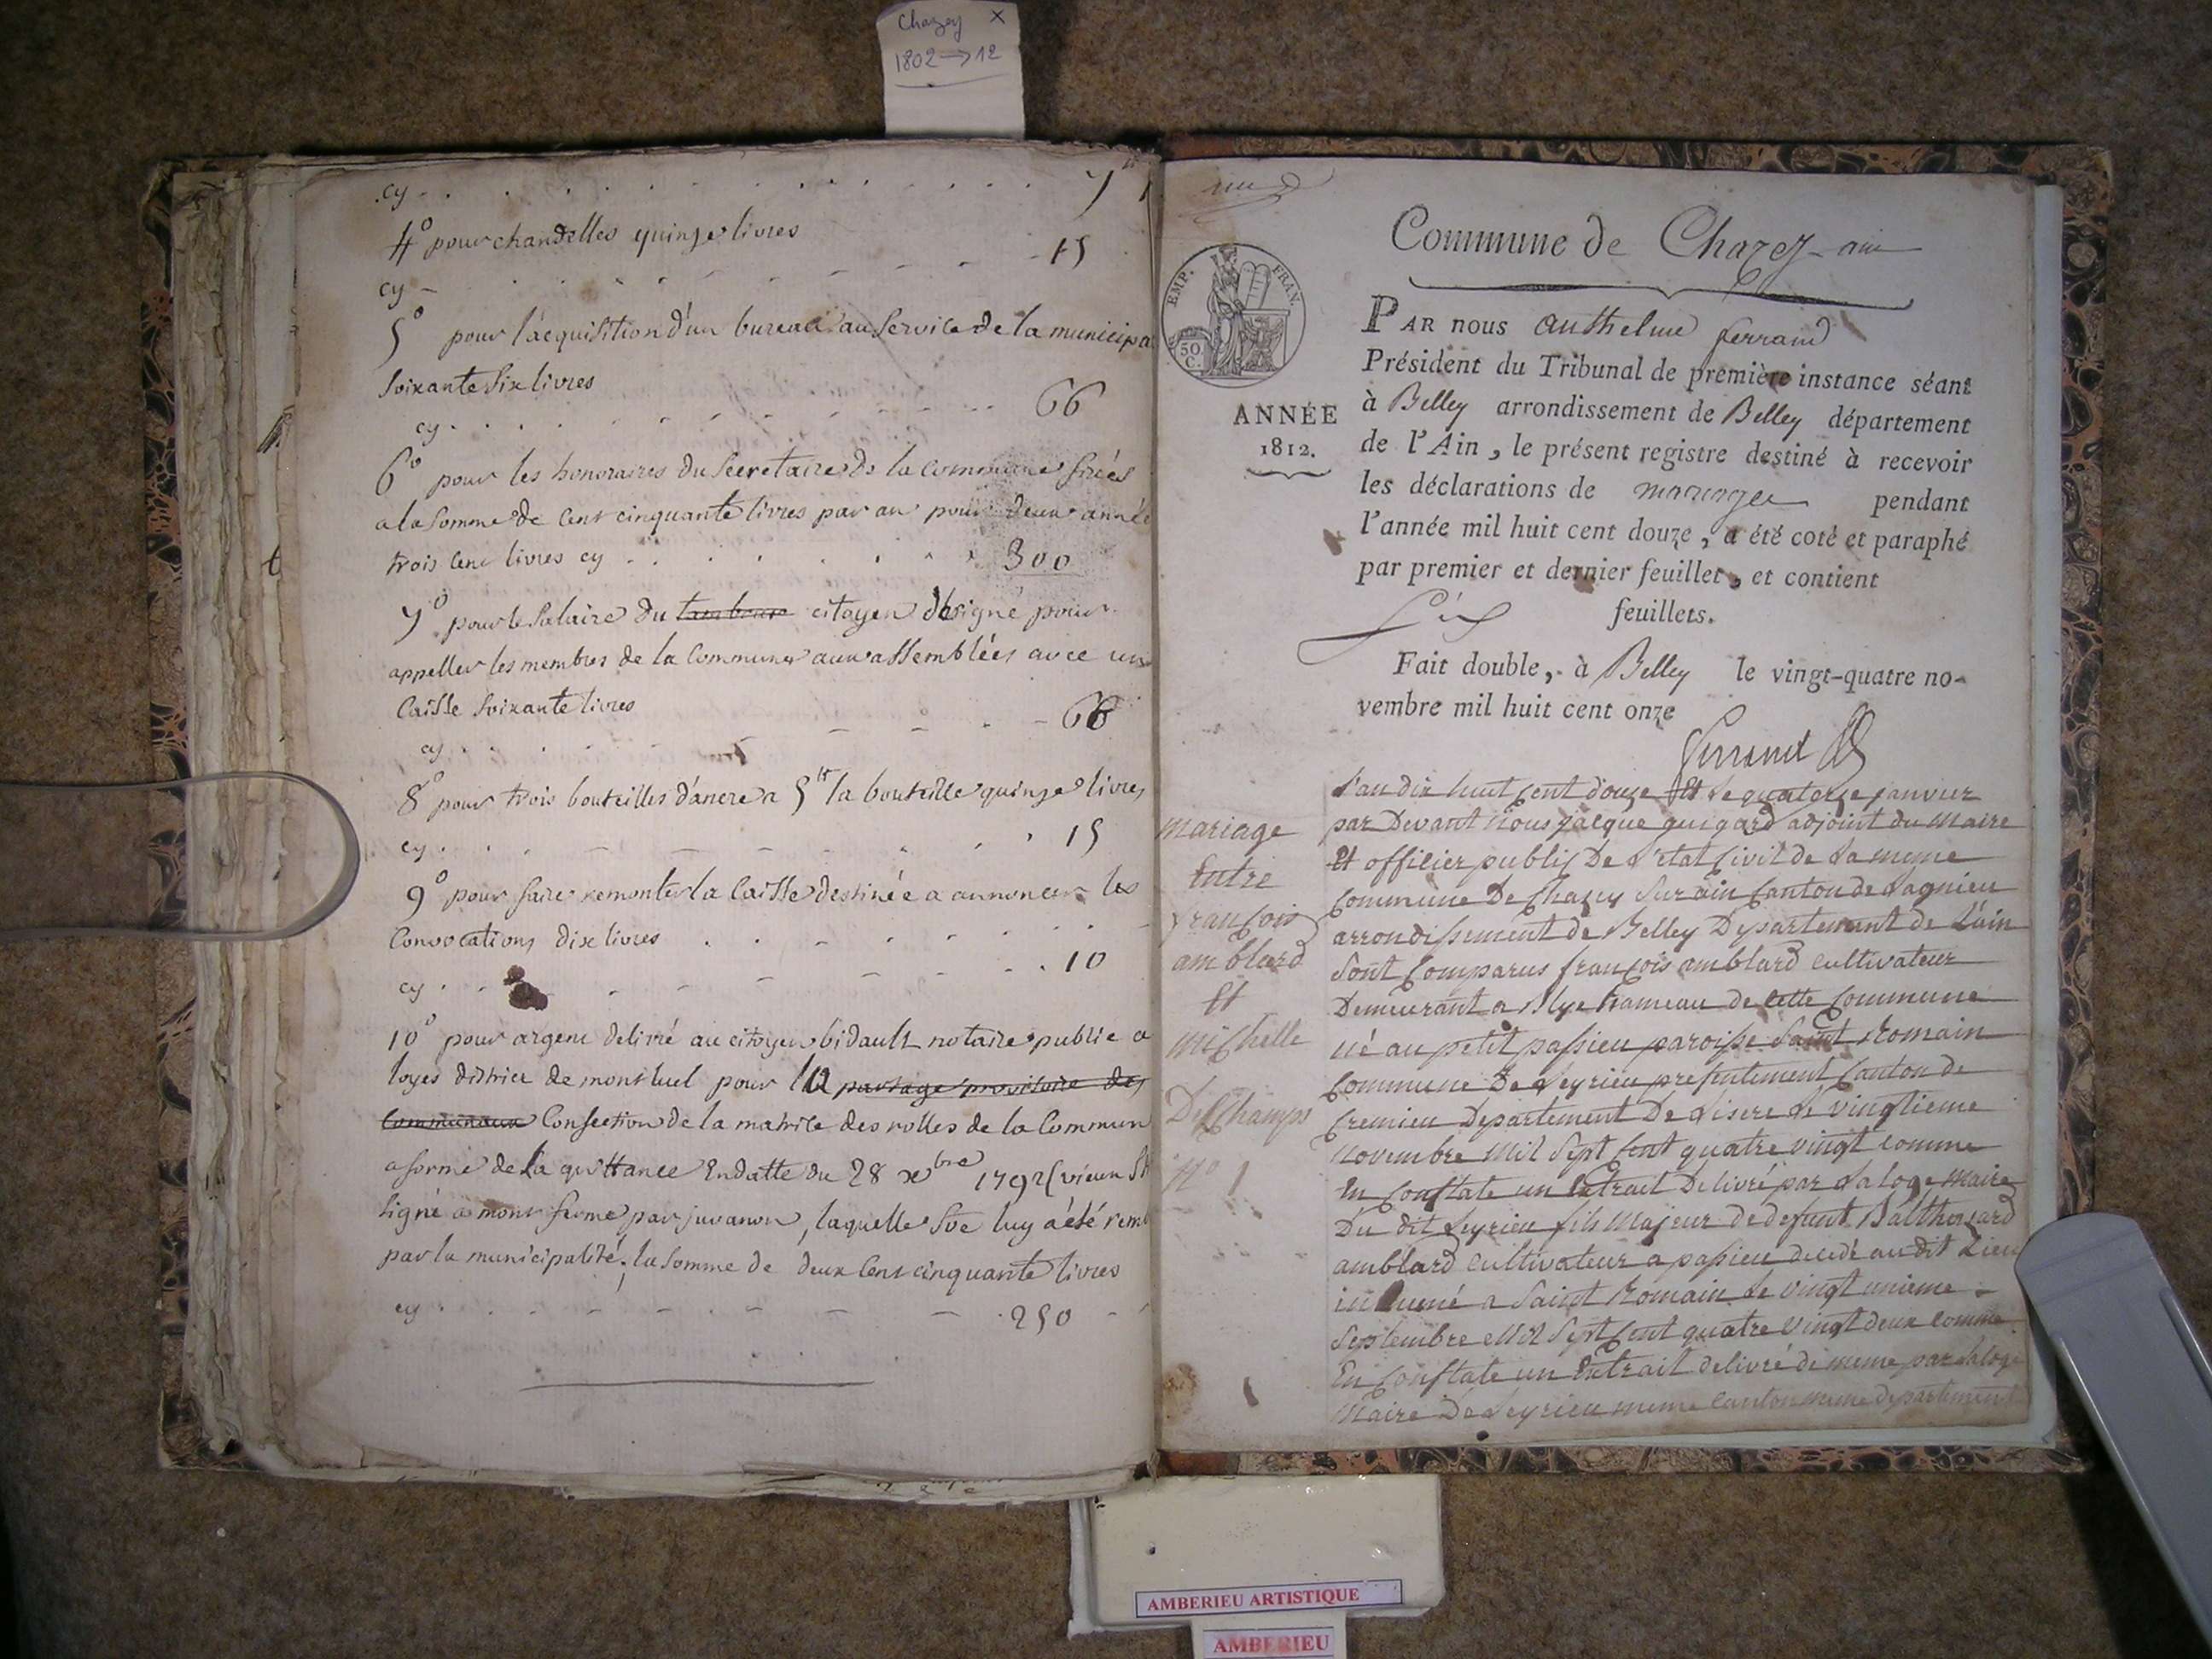 Chazey X
1802 → 12
cy
4° pour chandelles quinze livres
cy - 15
5° pour l'acquisition d'un bureau au service de la municipa
soixante six livres
cy 66
6° pour les honoraires du Secretaire de la Commune fixés
a la somme de cent cinquante livres par an pour deux anné
trois cent livres cy 300
7° pour le salaire du tambour citoyen désigné pour
appeller les membres de la Commune aux assemblées avec un
Caisse soixante livres
cy 66
8° pour trois bouteilles d'ancre a 5lt la bouteille quinze livres
cy 15
9° pour faire remonter la Caisse destinée a annoncer les
Convocations dix livres
cy 10
10° pour argent delivré au citoyen bidault notaire public a
loyes district de montluel pour la partage provisoire des
communaux Confection de la matrice des rolles de la Commun
a forme de la quittance en datte du 28 xbre 1792 (vieux st
signé a mont ferme par juvanon, laquelle sõe luy a été remb
par la municipalité; la somme de deux cent cinquante livres
cy 250
Commune de Chazey-ain
EMP. FRAN.
50.
C.
ANNÉE
1812.
PAR nous Anthelme ferrand
Président du Tribunal de première instance séant
à Belley arrondissement de Belley département
de l'Ain, le présent registre destiné à recevoir
les déclarations de mariages pendant
l'année mil huit cent douze, a été coté et paraphé
par premier et dernier feuillet, et contient
Six feuillets.
Fait double, à Belley le vingt-quatre no-
vembre mil huit cent onze
Ferrand
mariage
Entre
françois
amblard
Et
michelle
Deschamps
N° 1
L'an dix huit cent douze Et Le quatorze janvier
par Devant Nous jacque guigard adjoint du maire
Et officier public De L'etat Civil de La meme
Commune De Chazey sur ain Canton de Lagnieu
arrondissement de Belley Departement de L'ain
sont Comparus françois amblard cultivateur
Demeurant a Blye hameau de cette Commune
né au petit passieu paroisse Saint Romain
Commune De Leyrieu presentement Canton de
Cremieu Departement De Lisere Le vingtieme
Novembre Mil Sept Cent quatre vingt comme
En Constate un Extrait Delivré par Laloge Maire
Du dit Leyrieu fils Majeur de defunt Balthezard
amblard cultivateur a passieu decedé au dit Lieu
inhumé a Saint Romain Le vingt unieme
Septembre Mil Sept Cent quatre vingt deux comme
En Constate un Extrait delivré de meme par Laloge
Maire De Leyrieu meme canton meme departement
AMBERIEU ARTISTIQUE
AMBERIEU